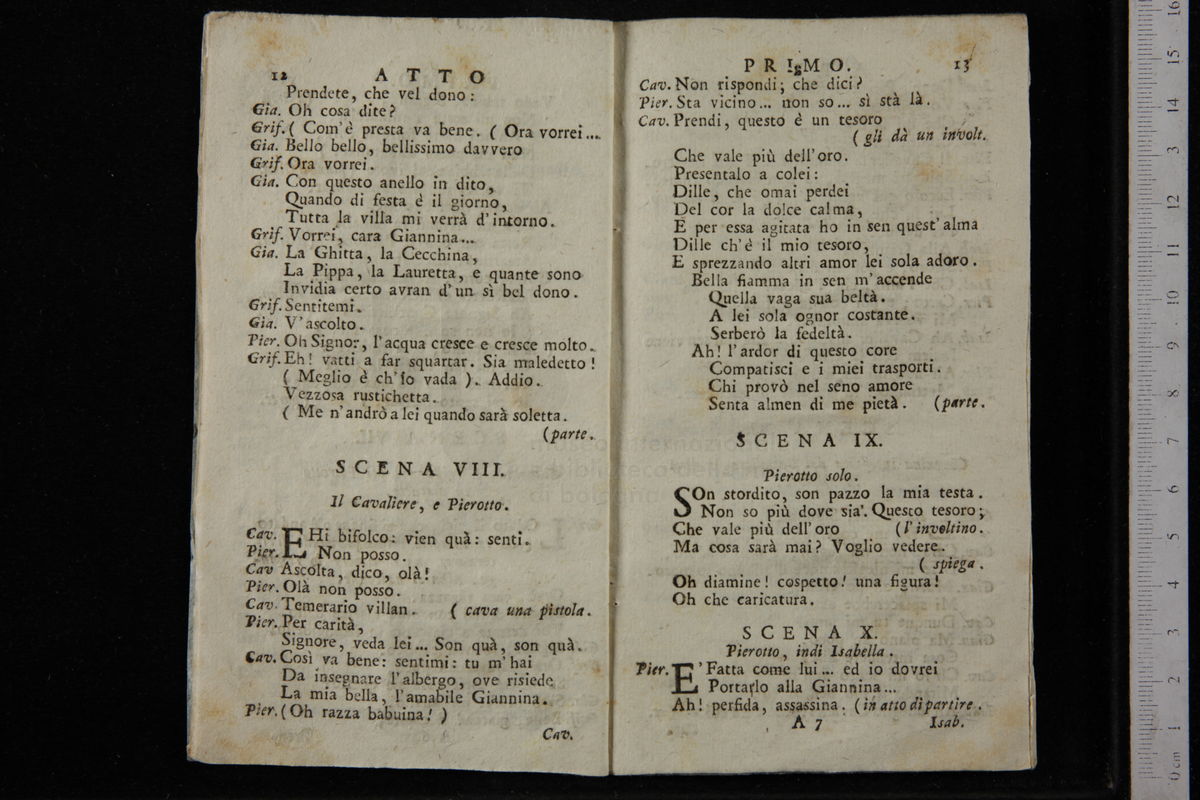 12 ATTO
Prendete, che vel dono:
Gia. Oh cosa dite?
Grif. ( Com'è presta va bene. ( Ora vorrei....
Gia. Bello bello, bellissimo davvero
Grif. Ora vorrei.
Gia. Con questo anello in dito,
Quando di festa è il giorno,
Tutta la villa mi verrà d'intorno.
Grif. Vorrei, cara Giannina...
Gia. La Ghitta, la Cecchina,
La Pippa, la Lauretta, e quante sono
Invidia certo avran d'un sì bel dono.
Grif. Sentitemi.
Gia. V'ascolto.
Pier. Oh Signor, l'acqua cresce e cresce molto.
Grif. Eh! vatti a far squartar. Sia maledetto!
( Meglio è ch'io vada ). Addio.
Vezzosa rustichetta.
( Me n'andrò a lei quando sarà soletta.
(parte.
SCENA VIII.
Il Cavaliere, e Pierotto.
Cav. EHi bifolco: vien quà: senti.
Pier. Non posso.
Cav Ascolta, dico, olà!
Pier. Olà non posso.
Cav. Temerario villan. ( cava una pistola.
Pier. Per carità,
Signore, veda lei... Son quà, son quà.
Cav. Così va bene: sentimi: tu m'hai
Da insegnare l'albergo, ove risiede
La mia bella, l'amabile Giannina.
Pier. (Oh razza babuina! )
Cav.
PRIMO. 13
Cav. Non rispondi; che dici?
Pier. Sta vicino... non so... sì stà là.
Cav. Prendi, questo è un tesoro
( gli dà un involt.
Che vale più dell'oro.
Presentalo a colei:
Dille, che omai perdei
Del cor la dolce calma,
E per essa agitata ho in sen quest'alma
Dille ch'è il mio tesoro,
E sprezzando altri amor lei sola adoro.
Bella fiamma in sen m'accende
Quella vaga sua beltà.
A lei sola ognor costante.
Serberò la fedeltà.
Ah! l'ardor di questo core
Compatisci e i miei trasporti.
Chi provò nel seno amore
Senta almen di me pietà. (parte.
SCENA IX.
Pierotto solo.
SOn stordito, son pazzo la mia testa.
Non so più dove sia'. Questo tesoro;
Che vale più dell'oro (l'involtino.
Ma cosa sarà mai? Voglio vedere.
( spiega.
Oh diamine! cospetto! una figura!
Oh che caricatura.
SCENA X.
Pierotto, indi Isabella.
Pier. E' Fatta come lui... ed io dovrei
Portarlo alla Giannina...
Ah! perfida, assassina. (in atto di partire.
A 7 Isab.